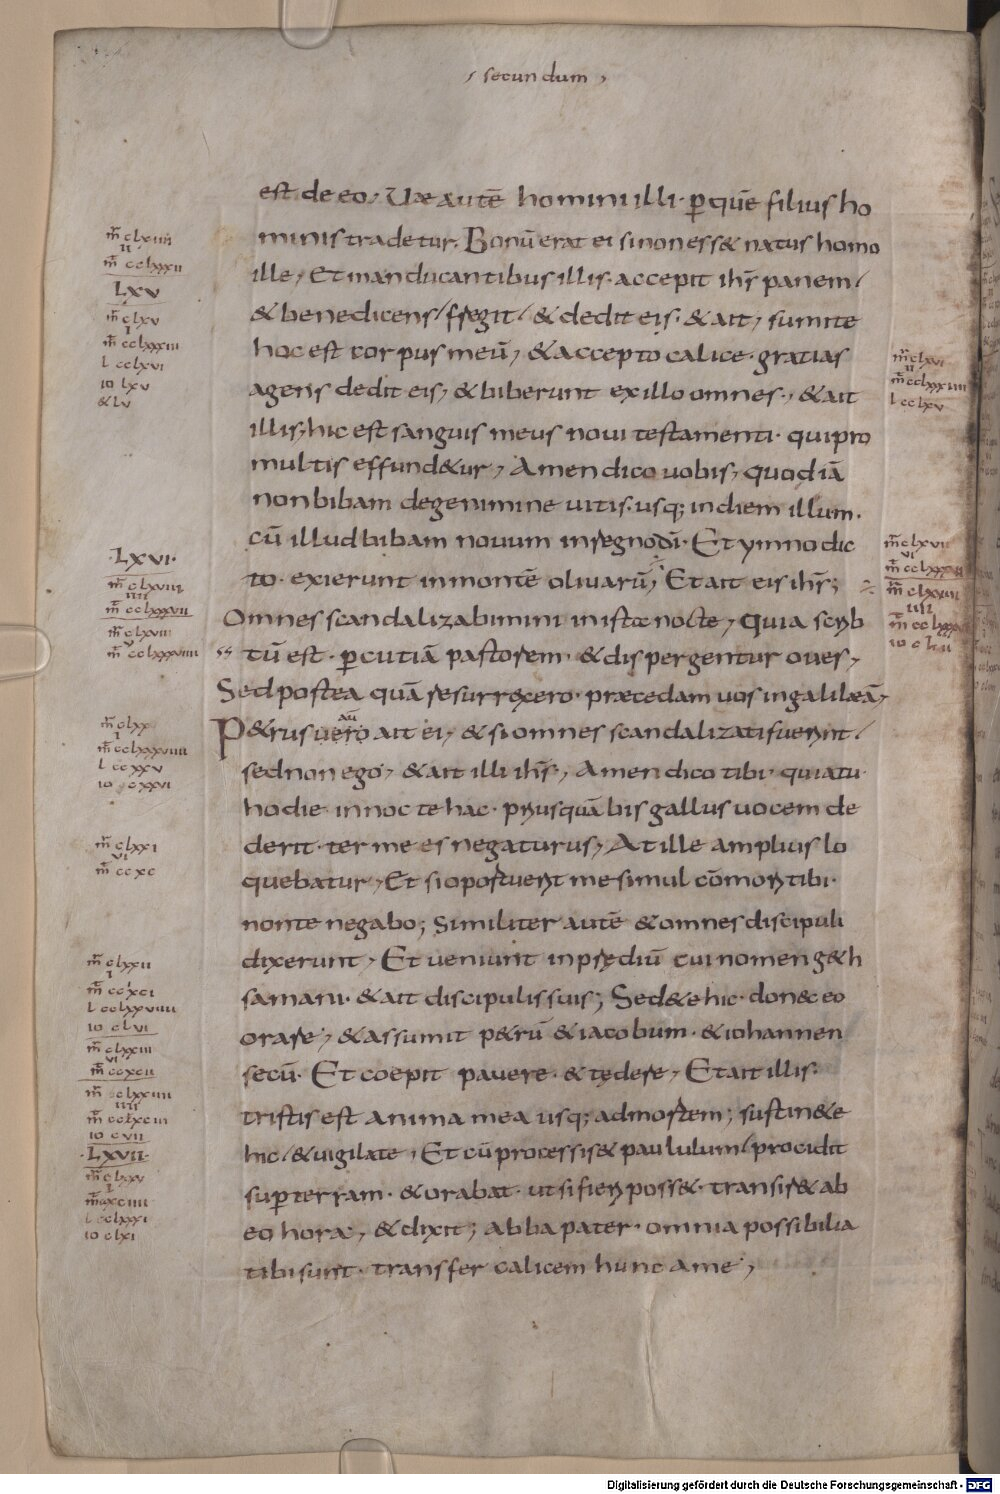 secundum
est de eo, Uae autē homini illi· ꝑ quē filius ho
minis tradetur, Bonū erat ei si non ess& natus homo
ille, Et manducantibus illis· accepit ihs̄ panem/
& benedicens/ fregit/ & dedit eis· & ait, sumite
hoc est corpus meū, & accepto calice· gratias
agens dedit eis, & biberunt ex illo omnes, & ait
illis, hic est sanguis meus noui testamenti· qui pro
multis effund&ur, Amen dico uobis, quod iā
non bibam de genimine uitis· usq; in diem illum·
cū illud bibam nouum in regno dī· Et ymno dic
to· exierunt in montē oliuarū, Et ait eis ihs̄;
Omnes scandalizabimini in ista nocte, Quia scrib
tū est· ꝑcutiā pastorem· & dispergentur oues,
Sed postea quā resurrexero· praecedam uos in galilaeā,
P&rus uero aū ait ei, & si omnes scandalizati fuerint/
sed non ego, & ait illi ihs̄, Amen dico tibi· quia tu
hodie in nocte hac· priusquā bis gallus uocem de
derit· ter me es negaturus, At ille amplius lo
quebatur, Et si oportuerit me simul cōmori tibi·
non te negabo; Similiter autē & omnes discipuli
dixerunt, Et ueniunt in prędiū cui nomen g&h
samani· & ait discipulis suis; Sed&e hic· donec eo
orare, & assumit p&rū & iacobum· & iohannen
secū· Et coepit pauere· & tędere, Et ait illis·
tristis est anima mea usq; ad mortem; sustin&e
hic/ & uigilate, Et cū processiss& paululum/ procidit
suꝑ terram· & orabat· ut si fieri poss&· transir& ab
eo hora, & dixit; abba pater· omnia possibilia
tibi sunt· transfer calicem hunc a me,
m̄ clxiiii
ii
m̄ cclxxxii
LXV
m̄ clxv
i
m̄ cclxxxiii
l cclxvi
io lxv
& lv
·LXVI·
m̄ clxviii
iiii
m̄ cclxxxvii
v
m̄ clxx
i
m̄ cclxxxviiii
l ccxxv
io cxxvi
m̄ clxxi
vi
m̄ ccxc
m̄ clxxii
i
m̄ ccxci
l cclxxviiii
io clvi
m̄ clxxiii
vi
m̄ ccxcii
m̄ clxxiiii
iiii
io cvii
·LXVII·
m̄ clxxv
i
l cclxxxi
io clxi
m̄ clxvi
ii
m̄ cclxxxiiii
l cclxv
m̄ clxvii
vi
iiii